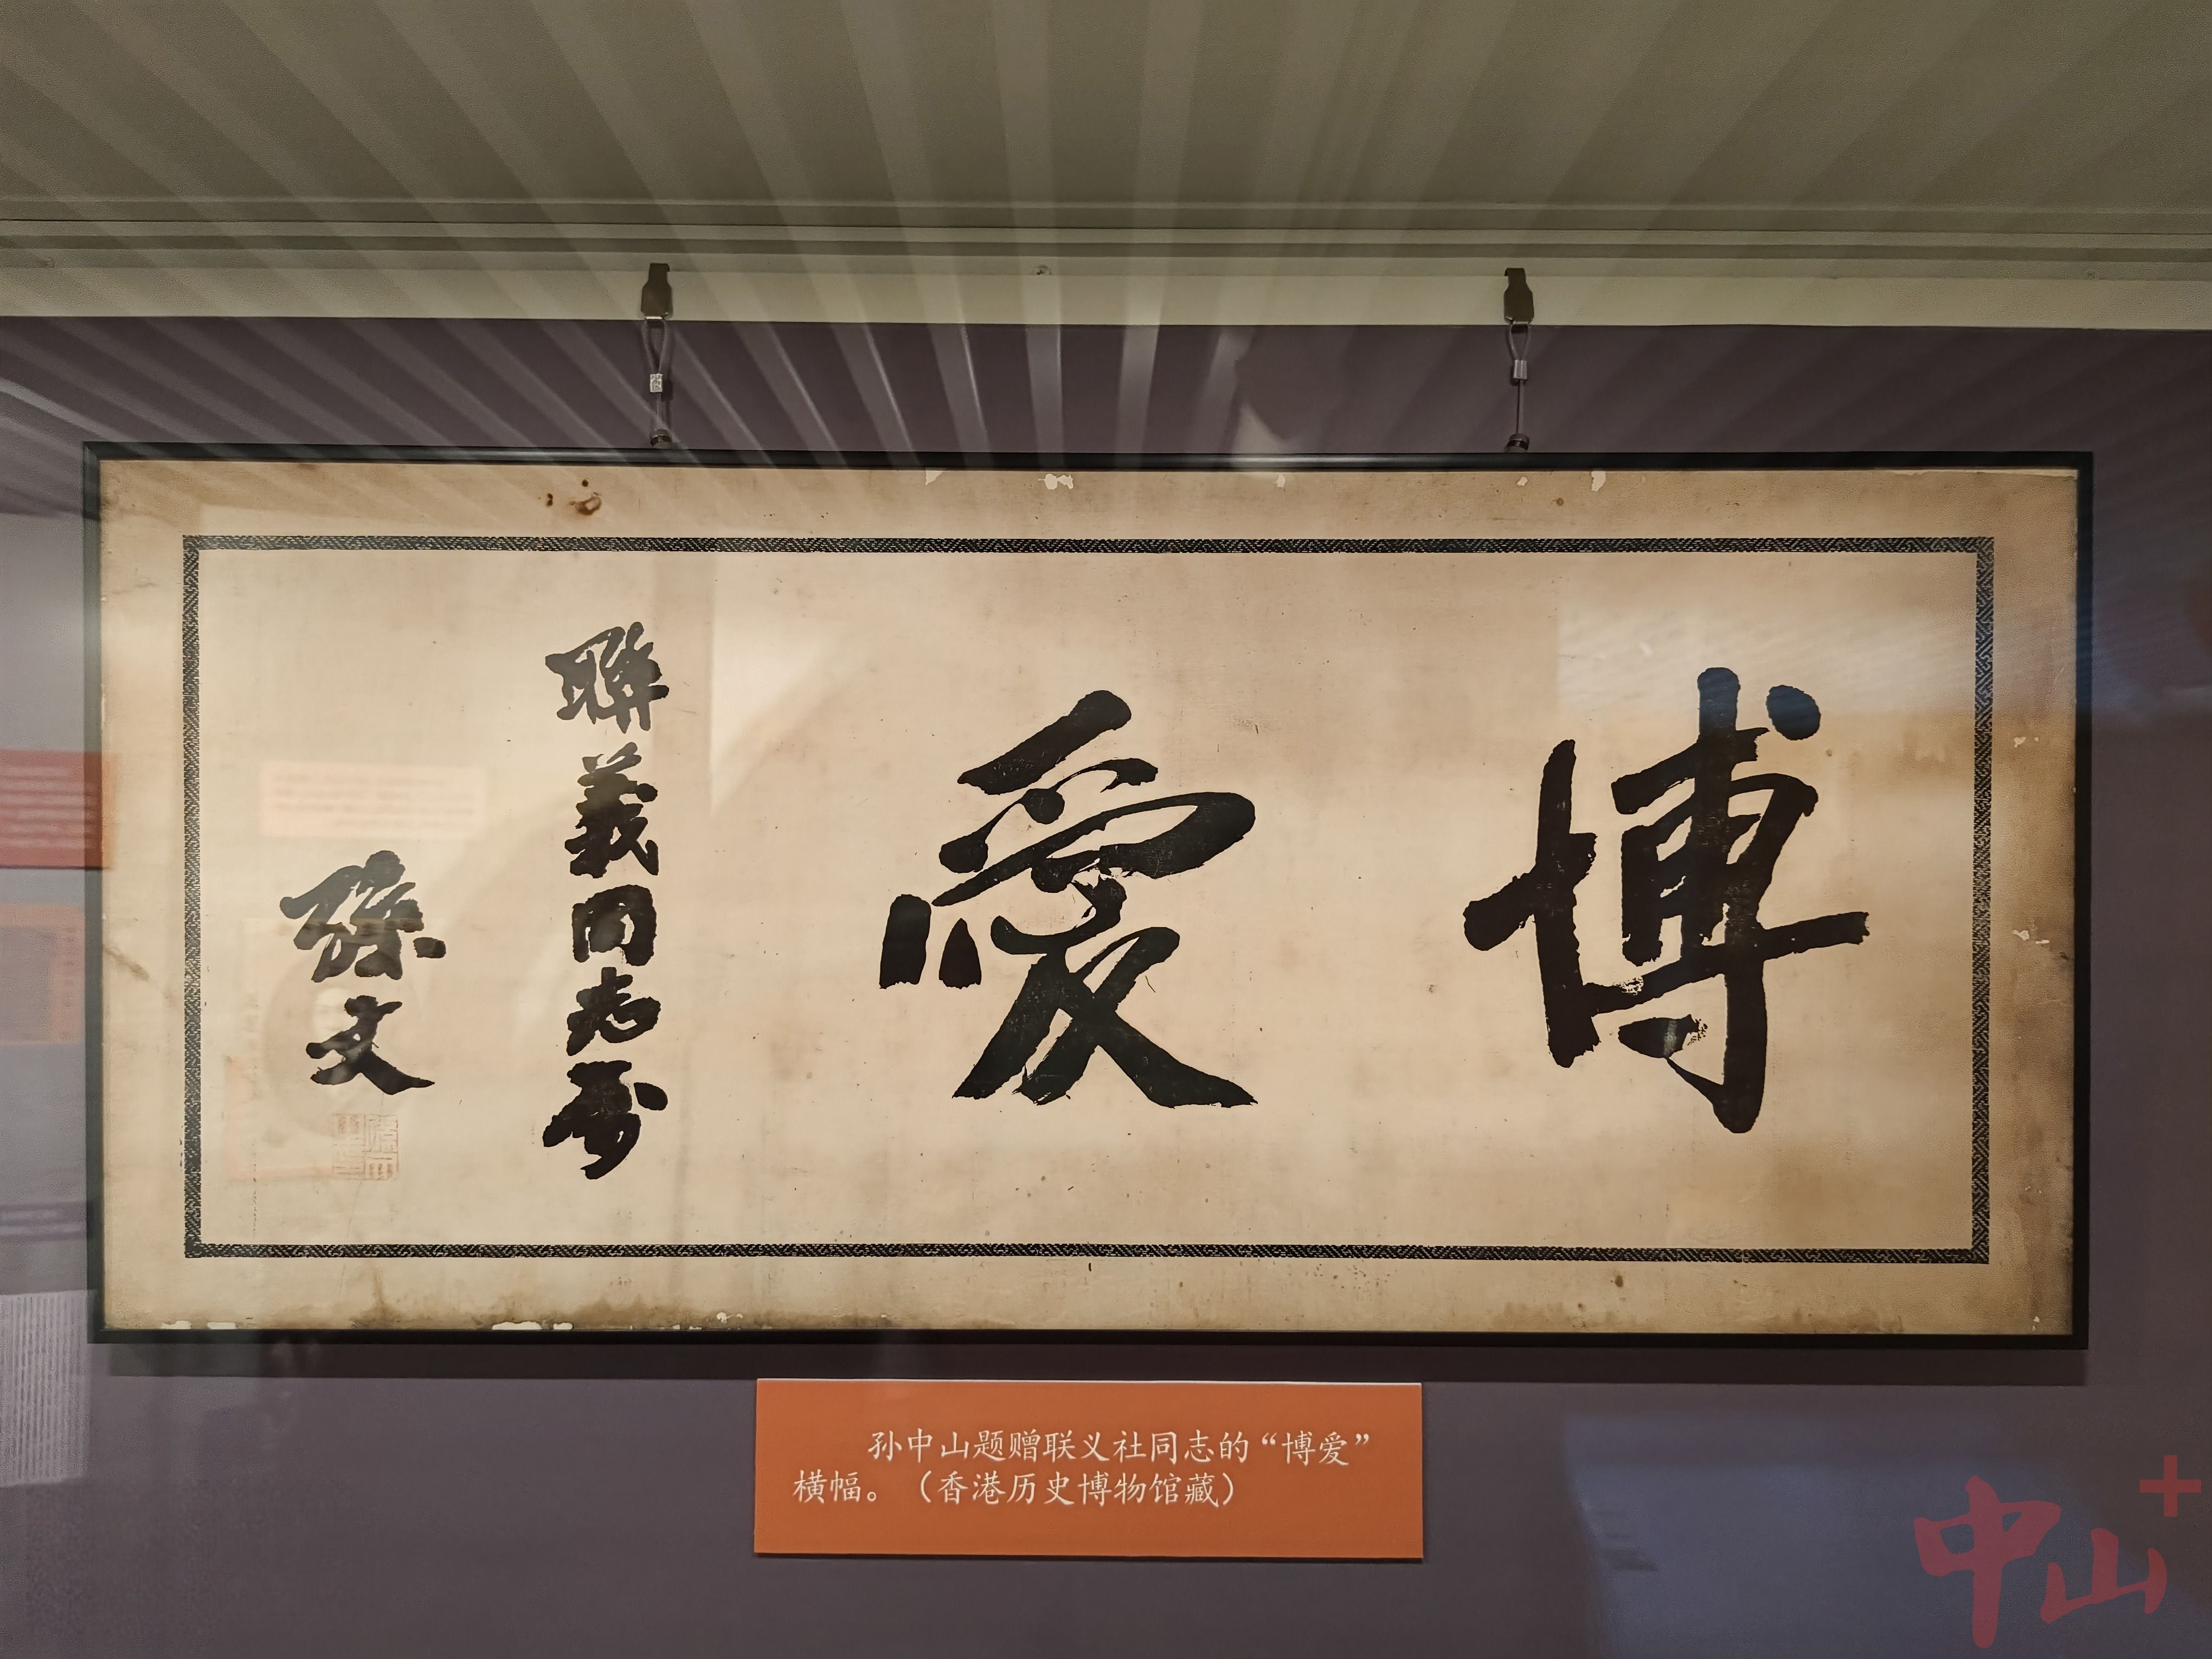 博愛
聯義同志屬
孫文
孙中山题赠联义社同志的“博爱”
横幅。（香港历史博物馆藏）
中山+